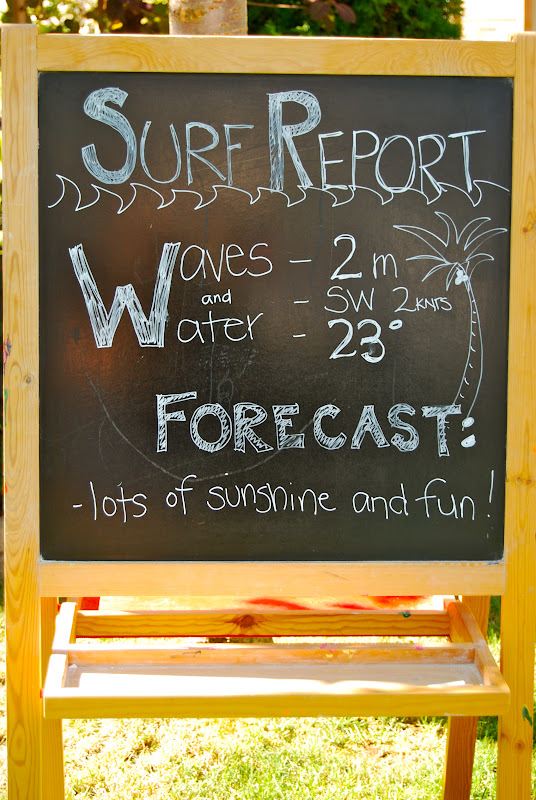 SURF REPORT
Waves - 2 m
and - SW 2 KNTS
Water - 23°
FORECAST:
- lots of sunshine and fun!